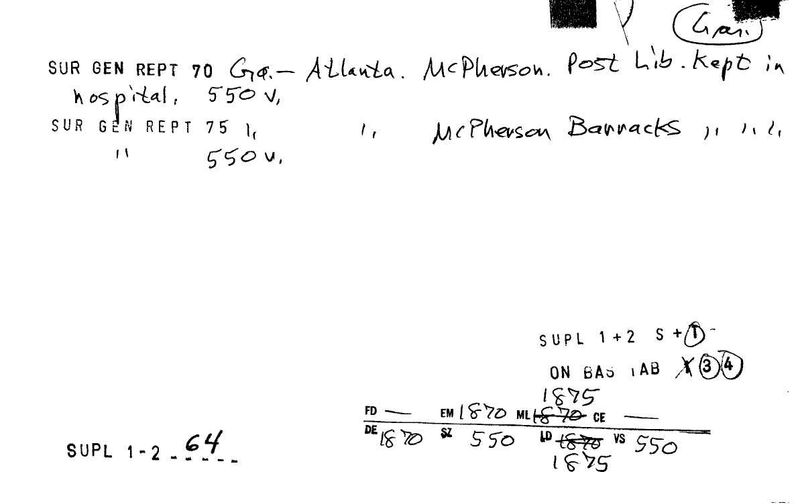 Gar.
SUR GEN REPT 70 Ga.— Atlanta. McPherson. Post Lib. Kept in
hospital. 550 v.
SUR GEN REPT 75 " " McPherson Barracks " " "
" 550 v.
SUPL 1+2 S + 1
ON BAS TAB X 3 4
1875
FD — EM 1870 ML 1870 CE —
DE 1870 SZ 550 LD 1870 VS 550
1875
SUPL 1-2 64